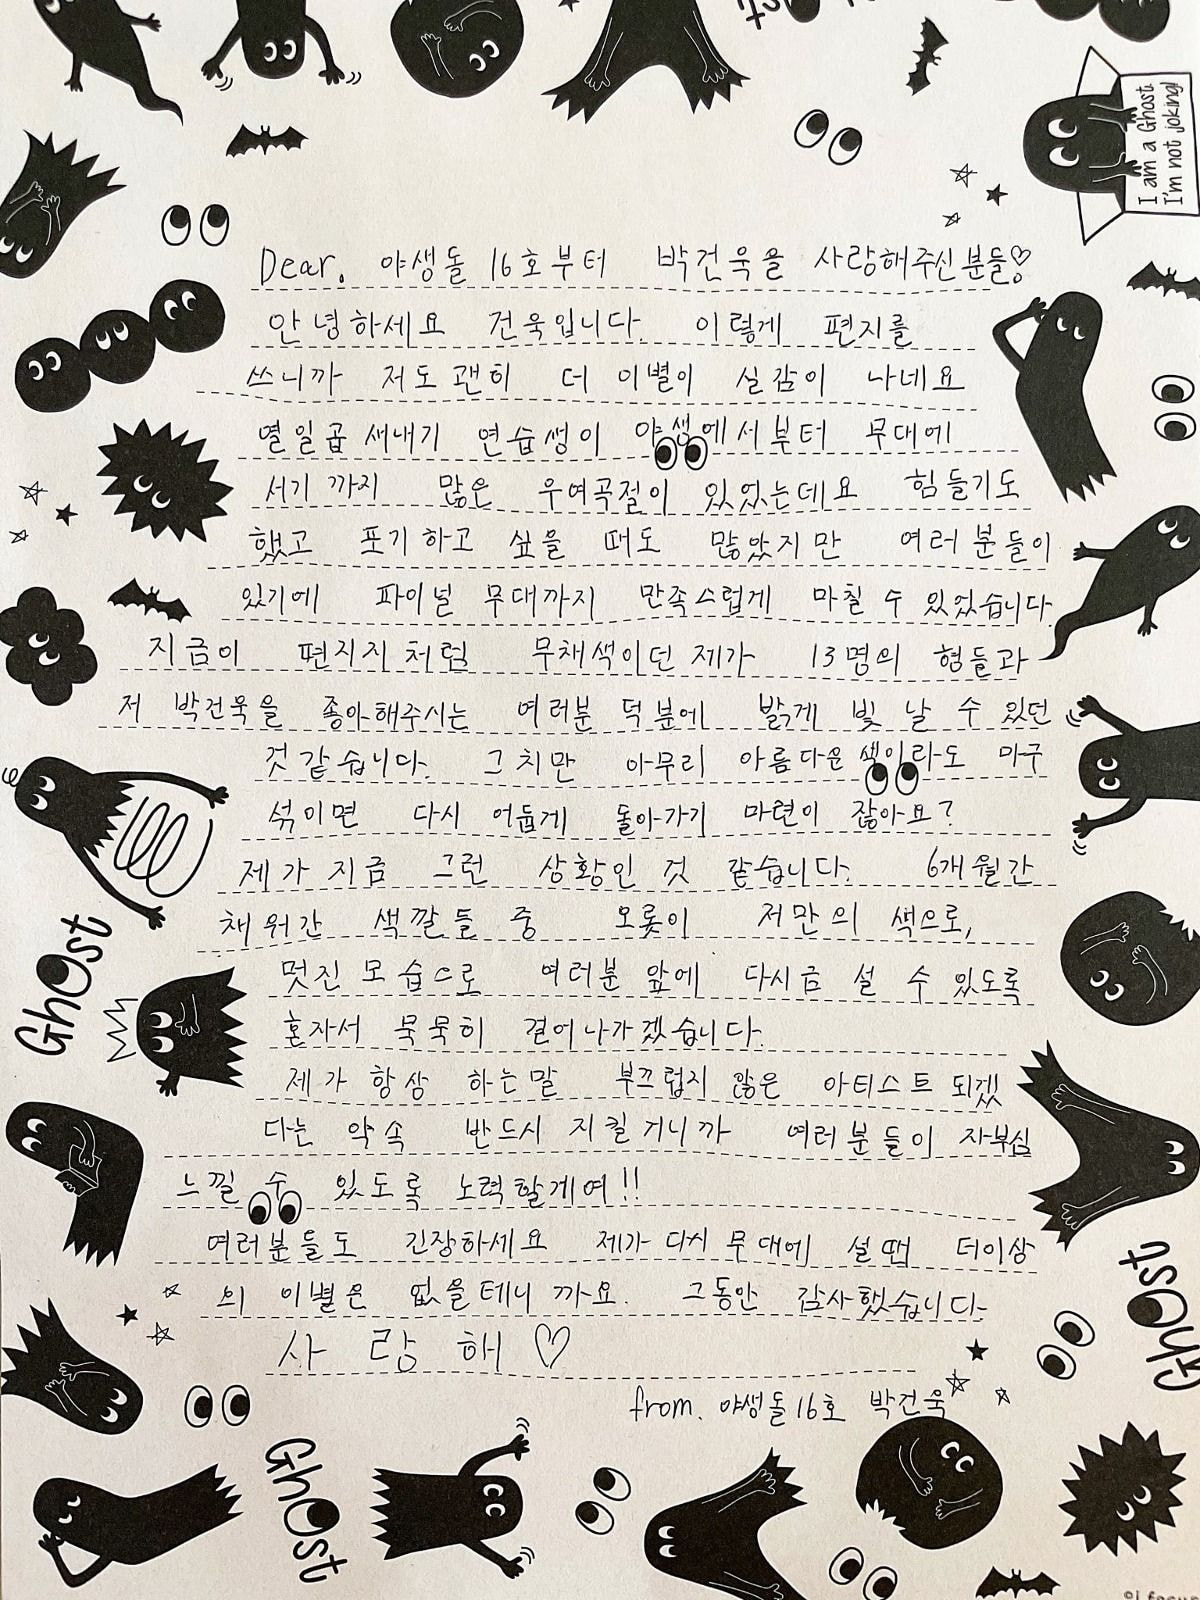 I am a Ghost
I'm not joking!
Dear. 야생돌 16호부터 박건욱을 사랑해주신분들♡
안녕하세요 건욱입니다. 이렇게 편지를
쓰니까 저도괜히 더 이별이 실감이 나네요
열일곱새내기 연습생이 야생에서부터 무대에
서기까지 많은 우여곡절이 있었는데요 힘들기도
했고 포기하고 싶을 때도 많았지만 여러분들이
있기에 파이널 무대까지 만족스럽게 마칠 수 있었습니다.
지금이 편지지처럼 무채색이던 제가 13명의 형들과
저 박건욱을 좋아해주시는 여러분 덕분에 밝게 빛 날 수 있던
것 같습니다. 그치만 아무리 아름다운 색이라도 마구
섞이면 다시 어둡게 돌아가기 마련이 잖아요?
제가 지금 그런 상황인 것 같습니다. 6개월간
채워간 색깔들 중 오롯이 저만의 색으로,
멋진 모습으로 여러분 앞에 다시금 설 수 있도록
혼자서 묵묵히 걸어나가겠습니다.
제가 항상 하는말 부끄럽지 않은 아티스트 되겠
다는 약속 반드시 지킬거니까 여러분들이 자부심
느낄 수 있도록 노력할게여!!
여러분들도 긴장하세요 제가 다시 무대에 설땐 더이상
의 이별은 없을테니까요. 그동안 감사했습니다
사랑해♡
from. 야생돌16호 박건욱
Ghost
Ghost
Ghost